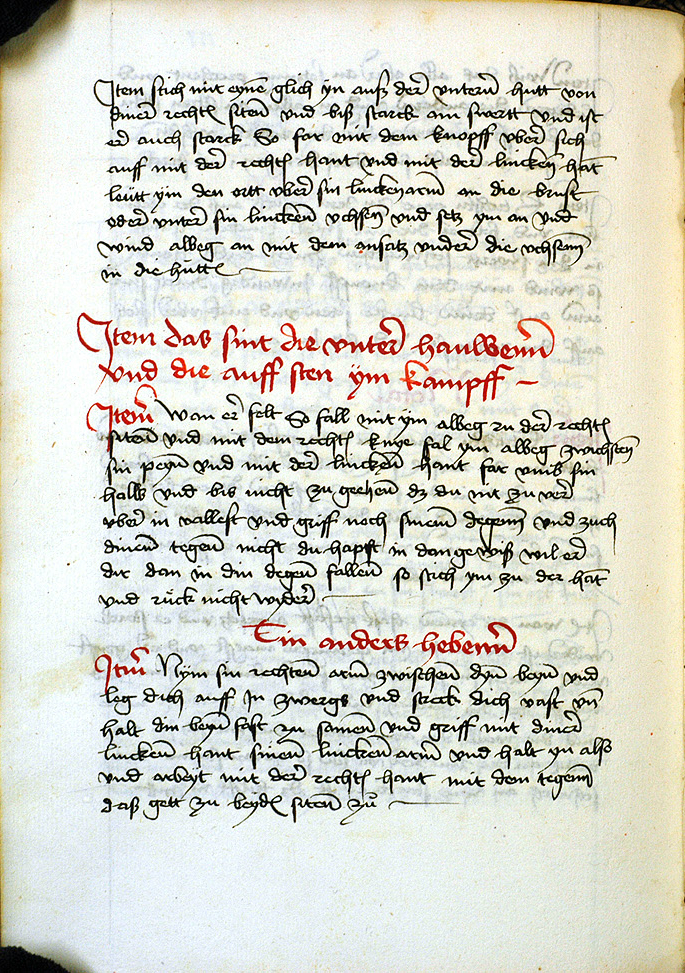 Item stich mit eyne glich yn auß der untern hutt von
diner rechten siten und biß starck am swertt und ist
er auch starck So far mit dem knopff vber sich
auff mit der rechten hant vnd mit der lincken hāt
leütt ym den ortt vber sin lincken arm an die brust
oder vnter sin lincken vchsen vnd setz ym an vnd
wind albeg an mit dem ansatz vnder die vchsenn
in die hutte
Item das sint die vnter haulwenn
vnd die auff sten ym kampff
Item Wan er felt So fall mit ym albeg zu der rechten
siten vnd mit dem rechten knye fal ym albeg zwichsten
sin peyn vnd mit der lincken hant far vmb sin
halß vnd bis nicht zu gechen dz du nit zu verr
vber in vallest vnd griff noch sinem degenn vnd zuch
dinem tegen nicht du hapst in dan gewiß wil er
dir dan in din degen fallen so stich ym zu der hāt
vnd rück nicht wyder
Ein anders hebenn
Item Nym sin rechten arm zwischen dyn beyn vnd
leg dich auff In zwergs vnd streck dich vast vn̄
halt din beyn fast zu samen vnd griff mit diner
lincken hant sinen lincken arm vnd halt yn also
vnd arbeyt mit der rechten hant mit dem tegenn
daß gett zu beyden siten zu